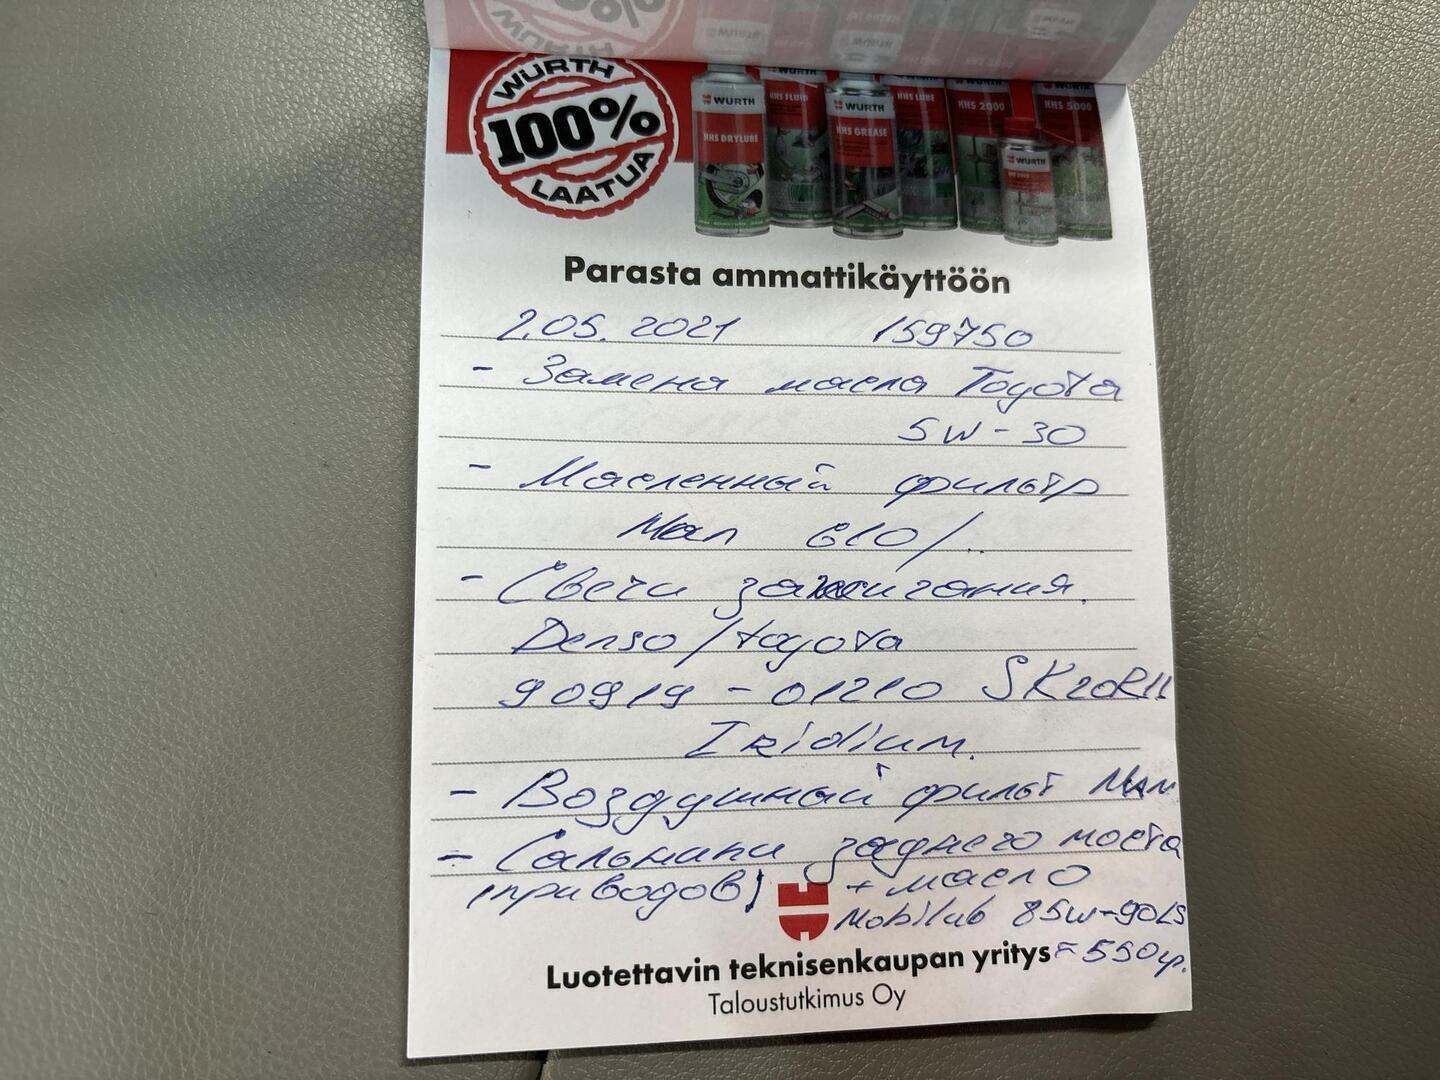 WURTH
100%
LAATUA
WURTH
HHS DRYLUBE
WURTH
HHS FLUID
WURTH
HHS GREASE
HHS LUBE
HHS 2000
WURTH
HHS 5000
Parasta ammattikäyttöön
2.05.2021 159750
- Замена масла Toyota
5W-30
- Масленный фильтр
Ман 610/
- Свечи зажигания.
Denso/toyota
90919-01210 SK20R11
Iridium.
- Воздушный фильт Ман
- Сальники заднего моста
(приводов) + масло
Mobilub 85W-90LS
Luotettavin teknisenkaupan yritys = 550гр.
Taloustutkimus Oy